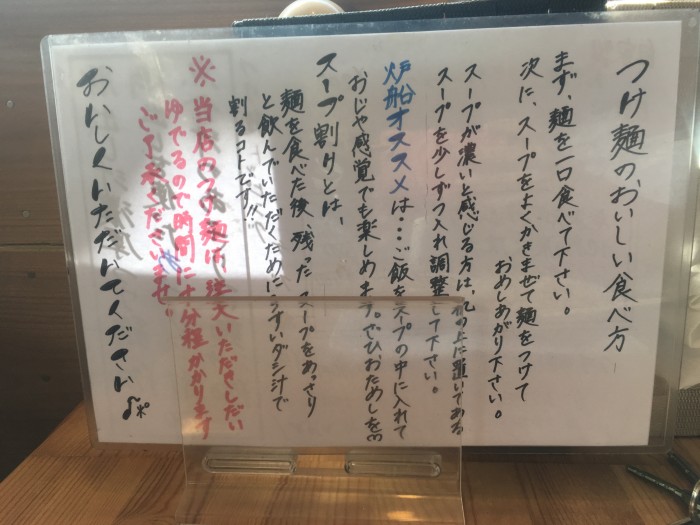 つけ麺のおいしい食べ方
まず、麺を一口食べて下さい。
次に、スープをよくかきまぜて麺をつけて
おめしあがり下さい。
スープが濃いと感じる方は、机の上に置いてある
スープを少しずつ入れ調整して下さい。
炉船オススメは…ご飯をスープの中に入れて
おじや感覚でも楽しめます。ぜひおためしを
スープ割りとは、
麺を食べた後、残ったスープをあっさり
と飲んでいただくためにうすいダシ汁で
割るコトです!!
※当店のつけ麺は、注文いただきしだい
ゆでるので時間に十分程かかります
ご了承くださいませ。
おいしくいただいてください♪